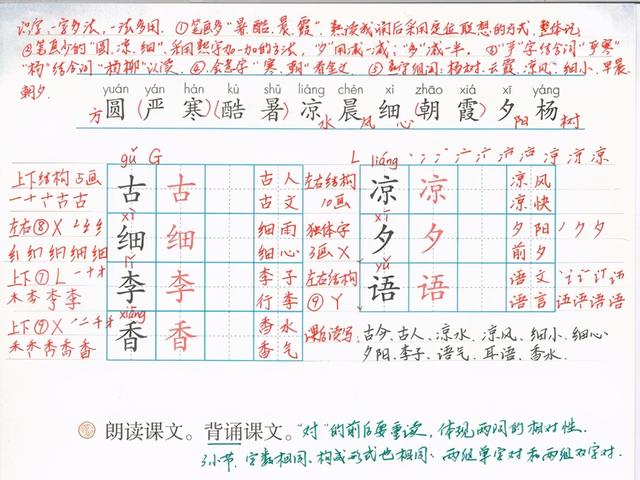 识字,一字多法,一法多用。①笔画多"暑.酷.晨.霞",熟读成诵后采用定位联想的方式,整体记
②笔画少的"圆.凉.细",采用熟字加一加的方法,"夕"用减一减:"多"减一半。③"严"字结合词"严寒"
"杨"结合词"杨柳"认读。④会意字"寒.朝"看金文。⑤熟字组词:杨树.云霞.凉风.细小.早晨
朝夕.
yuán yán hán kù shǔ liáng chén xì zhāo xiá xī yáng
方圆(严寒)(酷暑)凉水 晨风 细心(朝霞)夕阳 杨树
gǔ G
上下结构 5画 古 古 古人
一十十古古 古文
xì
左右⑧X 细 细 细雨
细心
lǐ
上下⑦L 李 李 李子
行李
xiāng
上下⑨X 香 香 香水
香气
L liáng
左右结构 凉 凉 凉风
10画 凉快
xī
独体字 夕 夕 夕阳 丿ク夕
3画X 前夕
yǔ
左右结构 语 语 语文
⑨Y 语言
课后读写:古今.古人.凉水.凉风.细小.细心
夕阳.李子.语气.耳语.香水.
朗读课文。背诵课文。"对"的前后要重读,体现两词的相对性.
3小节.字数相同、构成形式也相同、两组单字对和两组双字对.